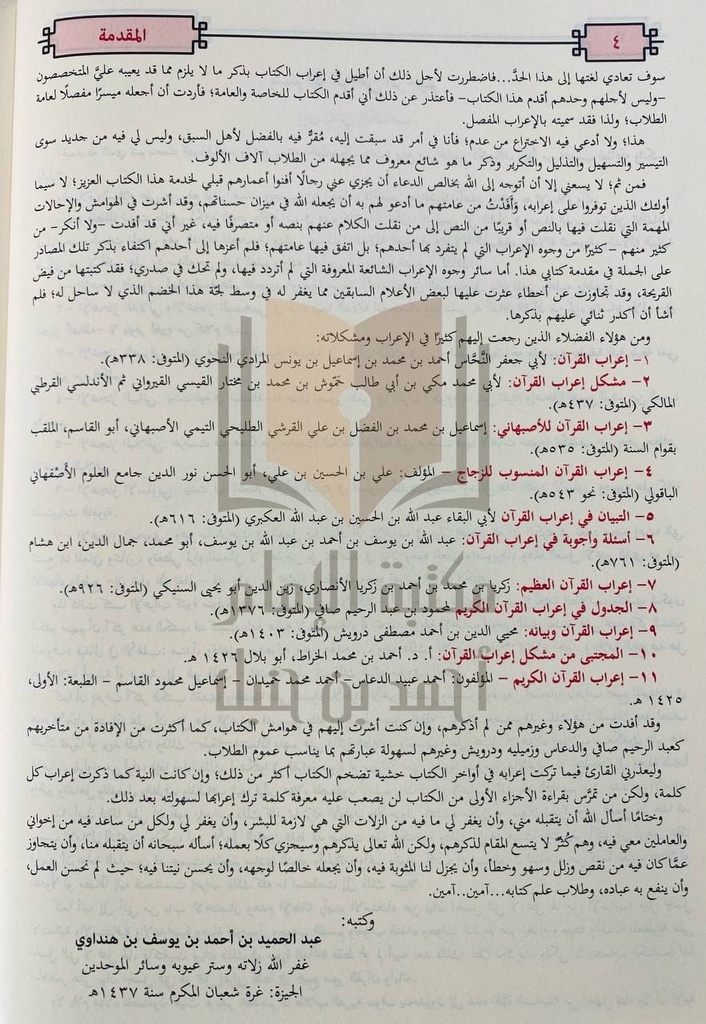 ٤
المقدمة
سوف تعادي لغتها إلى هذا الحدّ...فاضطررت لأجل ذلك أن أطيل في إعراب الكتاب بذكر ما لا يلزم مما قد يعيبه عليَّ المتخصصون
-وليس لأجلهم وحدهم أقدم هذا الكتاب- فأعتذر عن ذلك أني أقدم الكتاب للخاصة والعامة؛ فأردت أن أجعله ميسرًا مفصلًا لعامة
الطلاب؛ ولذا فقد سميته بالإعراب المفصل.
هذا؛ ولا أدعي فيه الاختراع من عدم؛ فأنا في أمر قد سبقت إليه، مُقرٌّ فيه بالفضل لأهل السبق، وليس لي فيه من جديد سوى
التيسير والتسهيل والتذليل والتكرير وذكر ما هو شائع معروف مما يجهله من الطلاب آلاف الألوف.
فمن ثم؛ لا يسعني إلا أن أتوجه إلى الله بخالص الدعاء أن يجزي عني رجالًا أفنوا أعمارهم قبلي لخدمة هذا الكتاب العزيز؛ لا سيما
أولئك الذين توفروا على إعرابه، وَأَفَدْتُ من عامتهم ما أدعو لهم به أن يجعله الله في ميزان حسناتهم، وقد أشرت في الهوامش والإحالات
المهمة التي نقلت فيها بالنص أو قريبًا من النص إلى من نقلت الكلام عنهم بنصه أو متصرفًا فيه، غير أني قد أفدت -ولا أنكر- من
كثير منهم - كثيرًا من وجوه الإعراب التي لم يتفرد بها أحدهم؛ بل اتفق فيها عامتهم؛ فلم أعزها إلى أحدهم اكتفاء بذكر تلك المصادر
على الجملة في مقدمة كتابي هذا. أما سائر وجوه الإعراب الشائعة المعروفة التي لم أتردد فيها، ولم تحك في صدري؛ فقد كتبتها من فيض
القريحة، وقد تجاوزت عن أخطاء عثرت عليها لبعض الأعلام السابقين مما يغفر له في وسط لجّة هذا الخضم الذي لا ساحل له؛ فلم
أشأ أن أكدر ثنائي عليهم بذكرها.
ومن هؤلاء الفضلاء الذين رجعت إليهم كثيرًا في الإعراب ومشكلاته:
١- إعراب القرآن: لأبي جعفر النَّحَّاس أحمد بن محمد بن إسماعيل بن يونس المرادي النحوي (المتوفى: ٣٣٨هـ).
٢- مشكل إعراب القرآن: لأبي محمد مكي بن أبي طالب حَمّوش بن محمد بن مختار القيسي القيرواني ثم الأندلسي القرطبي
المالكي (المتوفى: ٤٣٧هـ).
٣- إعراب القرآن للأصبهاني: إسماعيل بن محمد بن الفضل بن علي القرشي الطليحي التيمي الأصبهاني، أبو القاسم، الملقب
بقوام السنة (المتوفى: ٥٣٥هـ).
٤- إعراب القرآن المنسوب للزجاج - المؤلف: علي بن الحسين بن علي، أبو الحسن نور الدين جامع العلوم الأَصْفهاني
الباقولي (المتوفى: نحو ٥٤٣هـ).
٥- التبيان في إعراب القرآن لأبي البقاء عبد الله بن الحسين بن عبد الله العكبري (المتوفى: ٦١٦هـ).
٦- أسئلة وأجوبة في إعراب القرآن: عبد الله بن يوسف بن أحمد بن عبد الله بن يوسف، أبو محمد، جمال الدين، ابن هشام
(المتوفى: ٧٦١هـ).
٧- إعراب القرآن العظيم: زكريا بن محمد بن أحمد بن زكريا الأنصاري، زين الدين أبو يحيى السنيكي (المتوفى: ٩٢٦هـ).
٨- الجدول في إعراب القرآن الكريم لمحمود بن عبد الرحيم صافي (المتوفى: ١٣٧٦هـ).
٩- إعراب القرآن وبيانه: محيي الدين بن أحمد مصطفى درويش (المتوفى: ١٤٠٣هـ).
١٠- المجتبى من مشكل إعراب القرآن: أ. د. أحمد بن محمد الخراط، أبو بلال ١٤٢٦ هـ.
١١- إعراب القرآن الكريم - المؤلفون: أحمد عبيد الدعاس- أحمد محمد حميدان - إسماعيل محمود القاسم - الطبعة: الأولى،
١٤٢٥ هـ.
وقد أفدت من هؤلاء وغيرهم ممن لم أذكرهم، وإن كنت أشرت إليهم في هوامش الكتاب، كما أكثرت من الإفادة من متأخريهم
كعبد الرحيم صافي والدعاس وزميليه ودرويش وغيرهم لسهولة عبارتهم بما يناسب عموم الطلاب.
وليعذرني القارئ فيما تركت إعرابه في أواخر الكتاب خشية تضخم الكتاب أكثر من ذلك؛ وإن كانت النية كما ذكرت إعراب كل
كلمة، ولكن من تمرَّس بقراءة الأجزاء الأولى من الكتاب لن يصعب عليه معرفة كلمة ترك إعرابها لسهولته بعد ذلك.
وختامًا أسأل الله أن يتقبله مني، وأن يغفر لي ما فيه من الزلات التي هي لازمة للبشر، وأن يغفر لي ولكل من ساعد فيه من إخواني
والعاملين معي فيه، وهم كُثُرٌ لا يتسع المقام لذكرهم، ولكن الله تعالى يذكرهم وسيجزي كلًا بعمله؛ أسأله سبحانه أن يتقبله منا، وأن يتجاوز
عمَّا كان فيه من نقص وزلل وسهو وخطأ، وأن يجزل لنا المثوبة فيه، وأن يجعله خالصًا لوجهه، وأن يحسن نيتنا فيه؛ حيث لم نحسن العمل،
وأن ينفع به عباده، وطلاب علم كتابه...آمين..آمين.
وكتبه:
عبد الحميد بن أحمد بن يوسف بن هنداوي
غفر الله زلاته وستر عيوبه وسائر الموحدين
الجيزة: غرة شعبان المكرم سنة ١٤٣٧هـ
مكتبة الإمام
أحمد بن حنبل